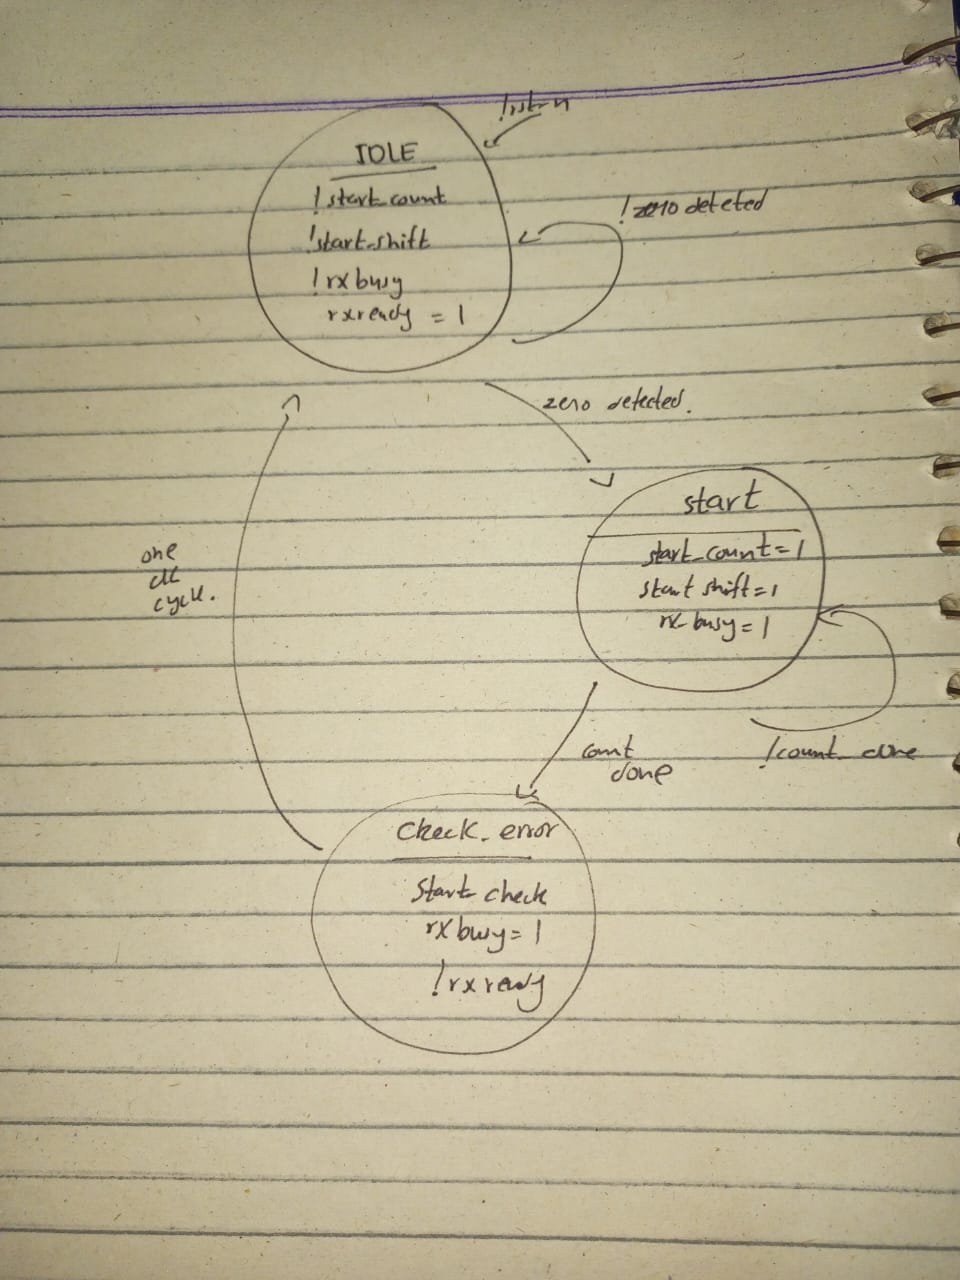 !rst-n
IDLE
!start_count
!start_shift
!rx busy
rxready = 1
!zero deteted
zero detected.
start
start_count=1
start shift=1
rx_busy=1
!count_done
count
done
one
clk
cycle.
Check_error
Start check
rx busy=1
!rx ready